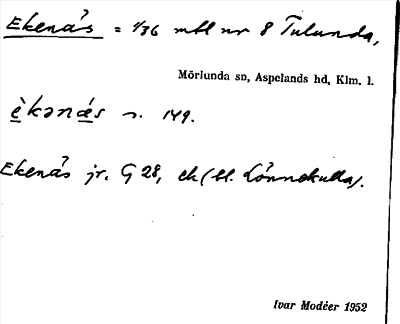 Ekenås = 1/36 mtl nr 8 Tulunda,
Mörlunda sn, Aspelands hd, Klm. l.
èkənás n. 149.
Ekenås jr. G 28, ek (bl. Lönnekulla).
Ivar Modéer 1952